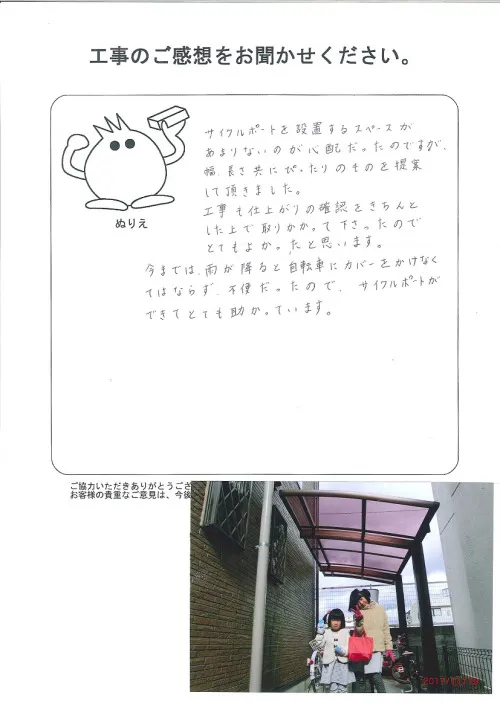 工事のご感想をお聞かせください。
ぬりえ
サイクルポートを設置するスペースが
あまりないのが心配だったのですが、
幅、長さ共にぴったりのものを提案
して頂きました。
工事も仕上がりの確認をきちんと
した上で取りかかって下さったので
とてもよかったと思います。
今までは、雨が降ると自転車にカバーをかけなく
てはならず、不便だったので、サイクルポートが
できてとても助かっています。
ご協力いただきありがとうござ
お客様の貴重なご意見は、今後